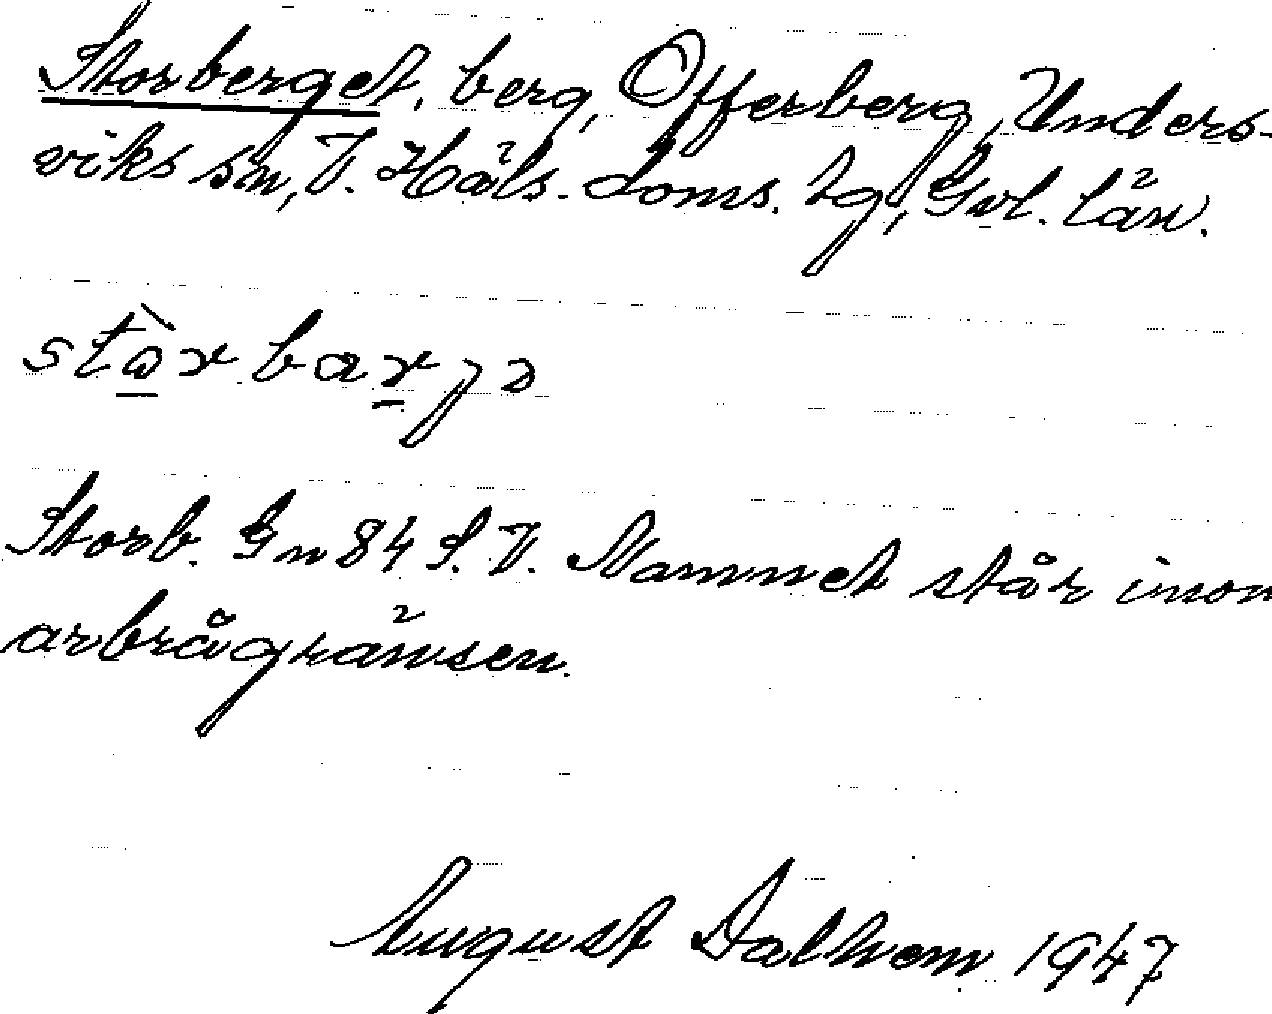 Storberget, berg, Offerberg, Unders-
viks sn, V. Häls. doms. tg, Gvl. län.
stòrbarjə
Storb. Gn 84 S.V. Namnet står inom
arbrågränsen.
August Dalhem 1947